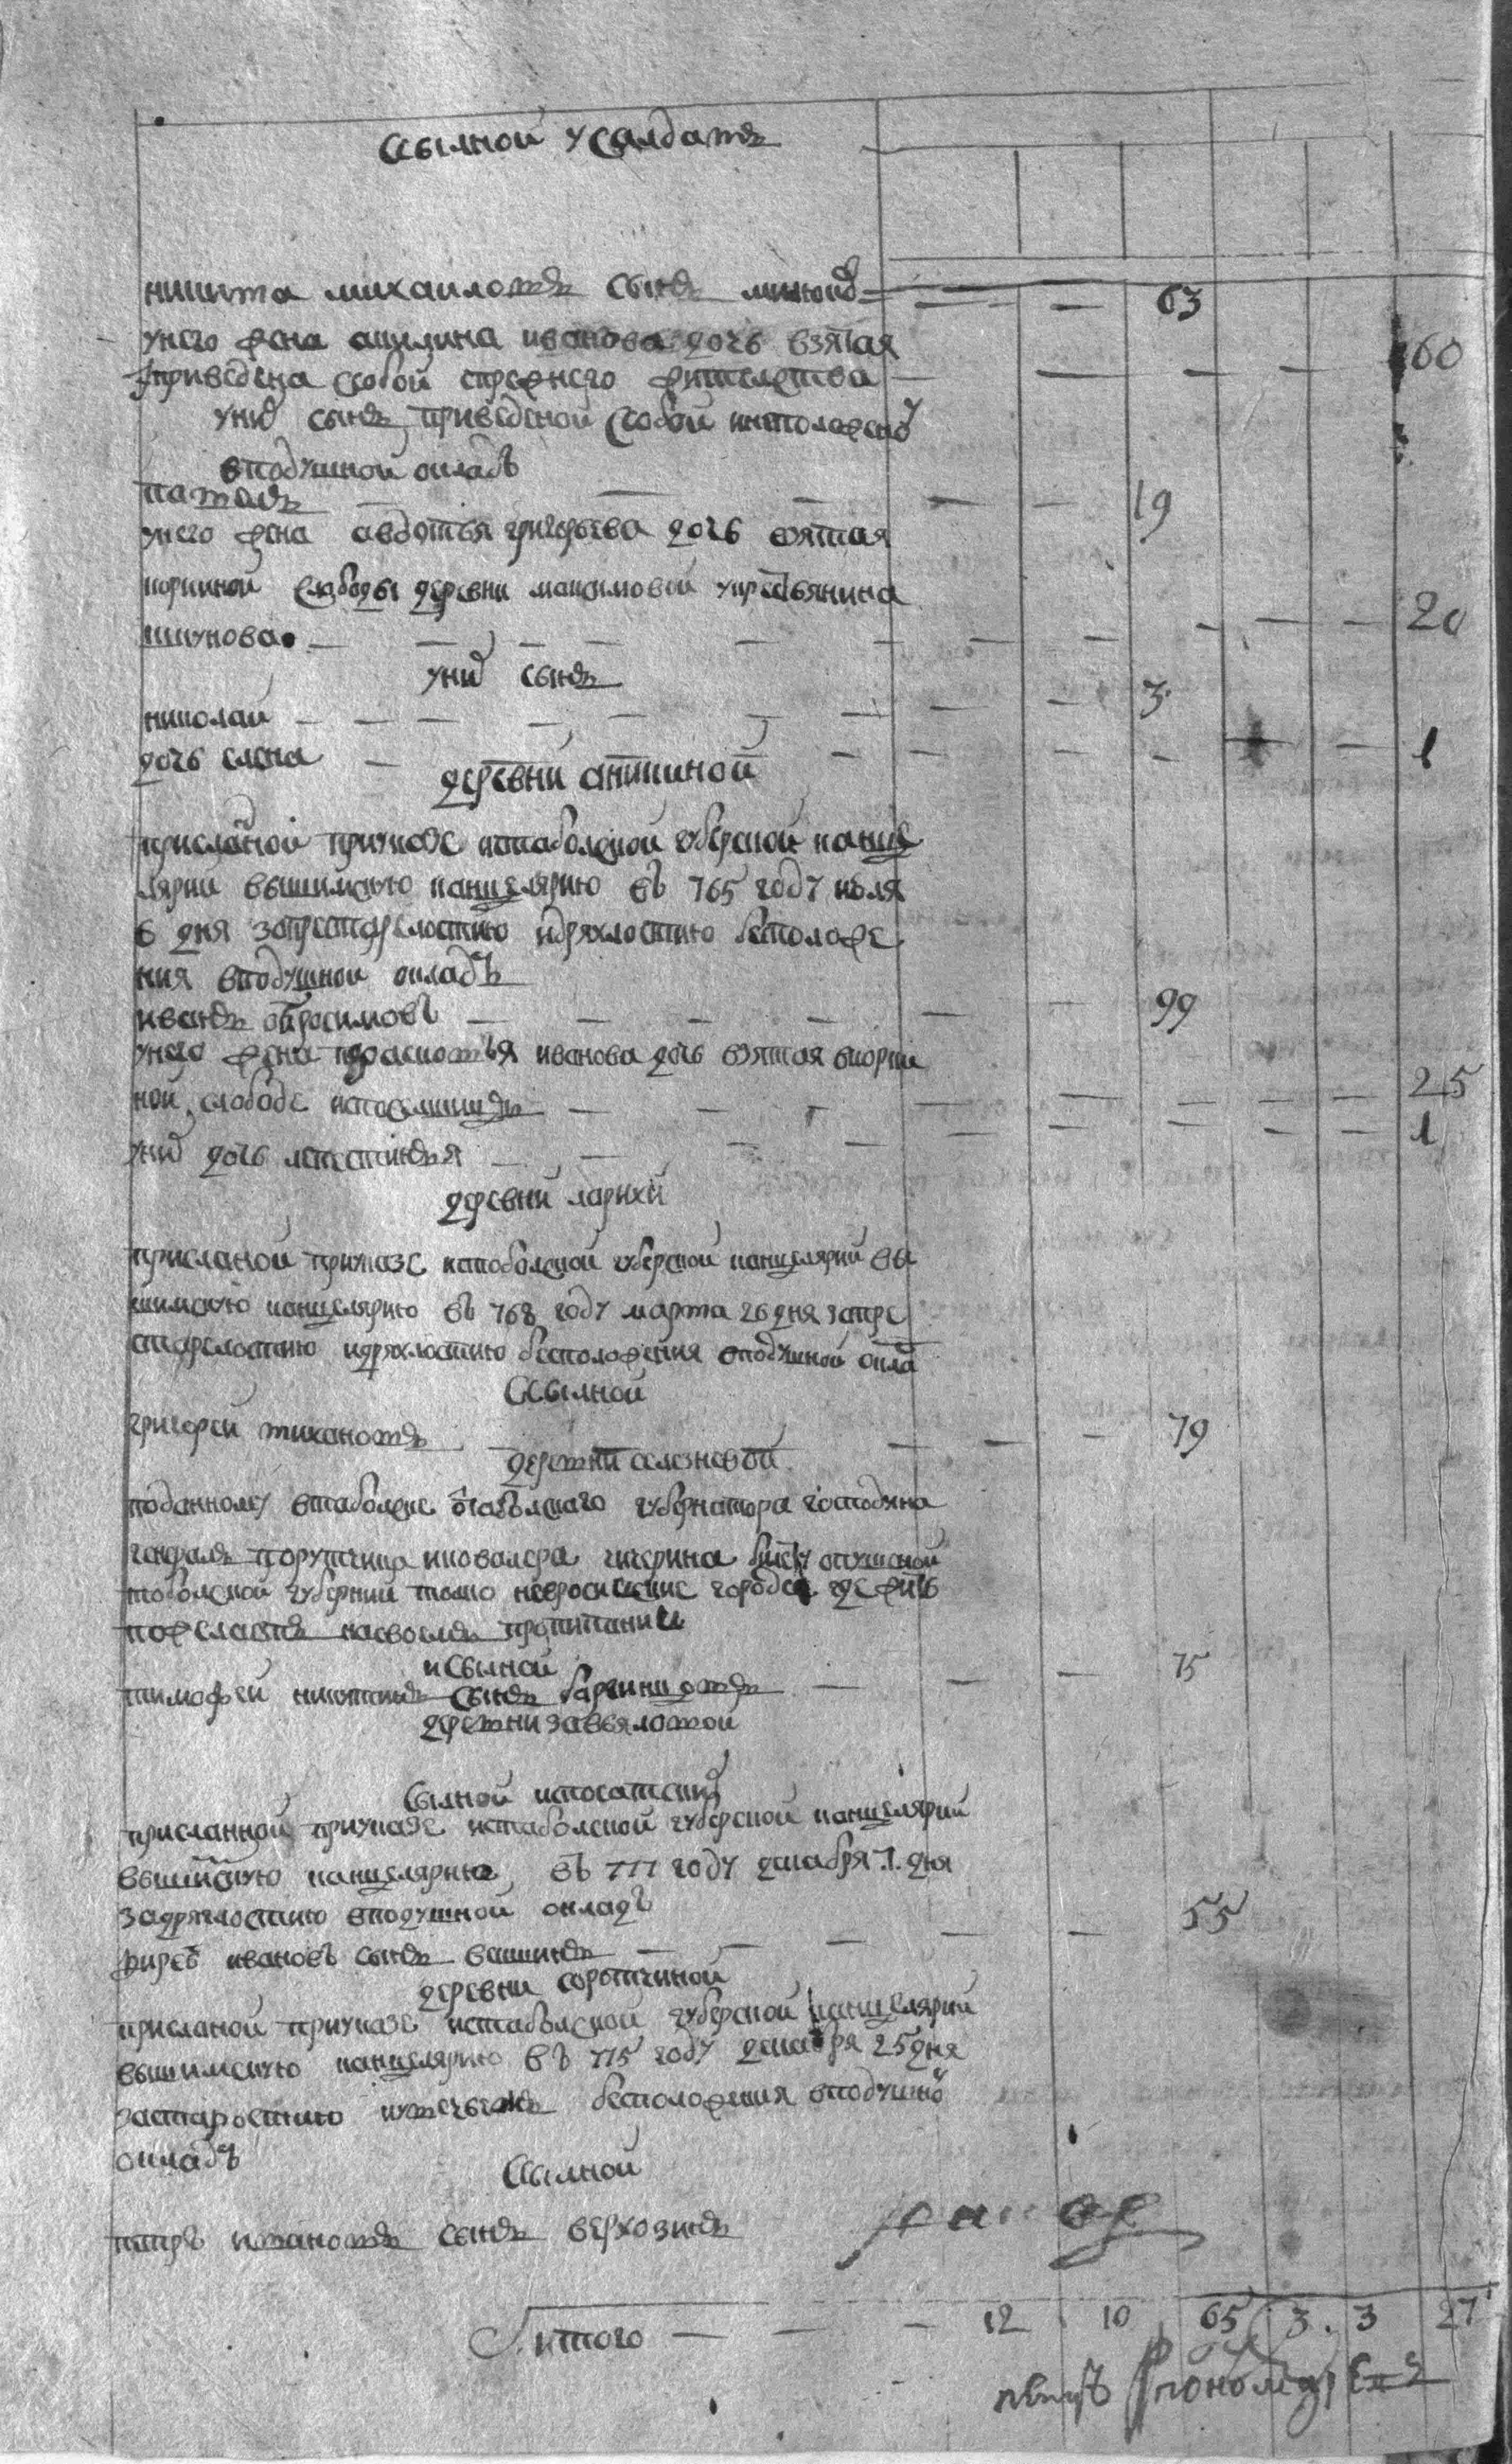 ссылной усалдатъ
никита михаиловъ сынъ 63
унего жена акилина иванова дочь взятая
приведена ссобой спрежнего жителства 60
уних сынъ приведеной ссобой инеположено
вподушной окладъ
патапъ 19
унего жена авдотья григорьева дочь взятая
коркиной слабоды деревни максимовой укрестьянина
шикунова 20
уних сынъ
николай 3
дочь елена 1
деревни аникиной
присланной приуказе истаболской губерской канце
лярии вышимскую канцелярию въ 765 году июля
6 дня запрестарелостию идряхлостию бесположе
ния вподушной окладъ
иванъ обросимовъ 99
унего жена прасковья иванова дочь взятая вкорки
ной слободе испоселщицъ 25
уних дочь
деревни ларихи
присланой приуказе истоболской губерской канцелярии вы
шимскую канцелярию въ 768 году марта 26 дня запре
старелостию идряхлостию бесположения вподушной окла
ссылной
григорей тихановъ 79
деревни селезневой
поданному втаболске губернатора господина
генерала порутчика иковалера чичерина билету
тоболской губернии толко городе где жить
пожелаетъ насвоемъ пропитании
ссылной
тимофей никитинъ сынъ 75
деревни завьяловой
сылной
присланной приуказе истаболской губерской канцелярии
вышимскую канцелярию въ 777 году декабря 1 дня
задряхлостию вподушной окладъ
ивановъ сынъ вяткинъ 55
деревни сорочкиной
присланой приуказе истаболской губерской канцелярии
вышимскую канцелярию въ 775 году декабря 25 дня
застаростию иувечьемъ бесположения вподушной
окладъ
ссылной
петръ ивановъ сынъ верхозинъ
итого 12 10 65 3 3 27
пономарь